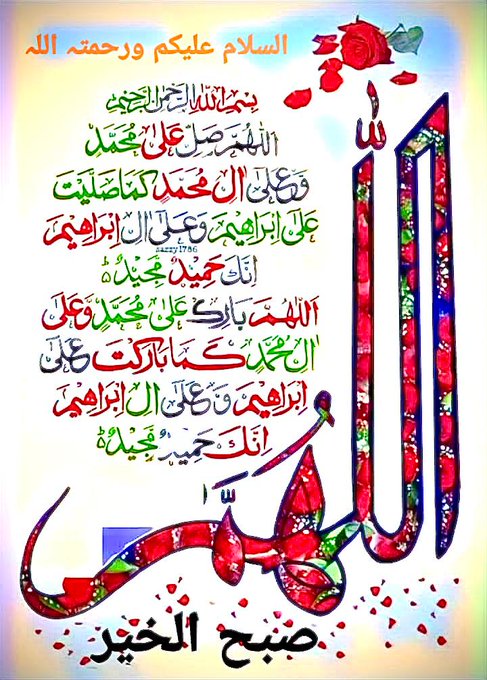 السلام علیکم ورحمتہ اللہ
بِسْمِ اللهِ الرَّحْمٰنِ الرَّحِيْمِ
اَللّٰهُمَّ صَلِّ عَلٰى مُحَمَّدٍ
وَّعَلٰى اٰلِ مُحَمَّدٍ كَمَا صَلَّيْتَ
عَلٰى اِبْرَاهِيْمَ وَعَلٰى اٰلِ اِبْرَاهِيْمَ
sazzy1786
اِنَّكَ حَمِيْدٌ مَّجِيْدٌ
اَللّٰهُمَّ بَارِكْ عَلٰى مُحَمَّدٍ وَّعَلٰى
اٰلِ مُحَمَّدٍ كَمَا بَارَكْتَ عَلٰى
اِبْرَاهِيْمَ وَعَلٰى اٰلِ اِبْرَاهِيْمَ
اِنَّكَ حَمِيْدٌ مَّجِيْدٌ
اللّٰهُمَّ
صبح الخير